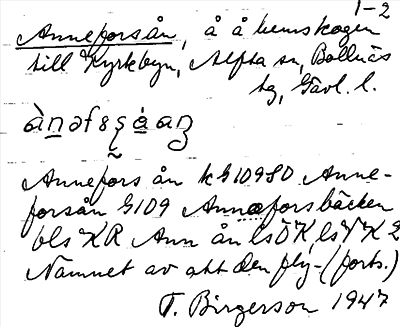 1-2
Anneforsån, å å hemskogen
till Kyrkbyn, Alfta sn, Bollnäs
tg, Gävl. l.
Annefors ån k G109SO Anne-
forsån G109 Anneforsbäcken
bls KR Ann ån lsÖK, lsVK2
Namnet av att den fly- (forts.)
T. Birgerson 1947